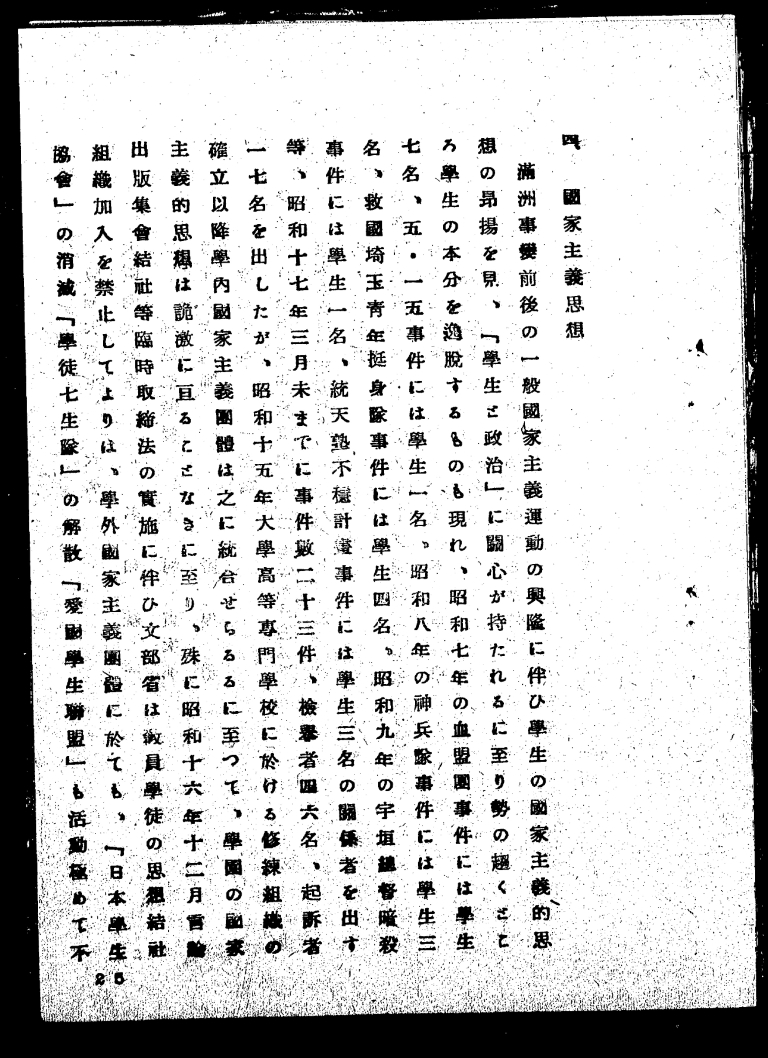 四、國家主義思想
滿洲事變前後の一般國家主義運動の興隆に伴ひ學生の國家主義的思
想の昂揚を見、「學生と政治」に關心が持たれるに至り勢の趨くとこ
ろ學生の本分を逸脱するものも現れ、昭和七年の血盟團事件には學生
七名、五・一五事件には學生一名、昭和八年の神兵隊事件には學生三
名、救國埼玉青年挺身隊事件には學生四名、昭和九年の宇垣總督暗殺
事件には學生一名、統天塾不穩計畫事件には學生三名の關係者を出す
等、昭和十七年三月末までに事件數二十三件、檢擧者四六名、起訴者
一七名を出したが、昭和十五年大學高等專門學校に於ける修練組織の
確立以降學内國家主義團體は之に統合せらるるに至つて、學園の國家
主義的思想は詭激に亘ることなきに至り、殊に昭和十六年十二月言論
出版集會結社等臨時取締法の實施に伴ひ文部省は教員學徒の思想結社
組織加入を禁止してよりは、學外國家主義團體に於ても、「日本學生
協會」の消滅「學徒七生隊」の解散「愛國學生聯盟」も活動極めて不
25